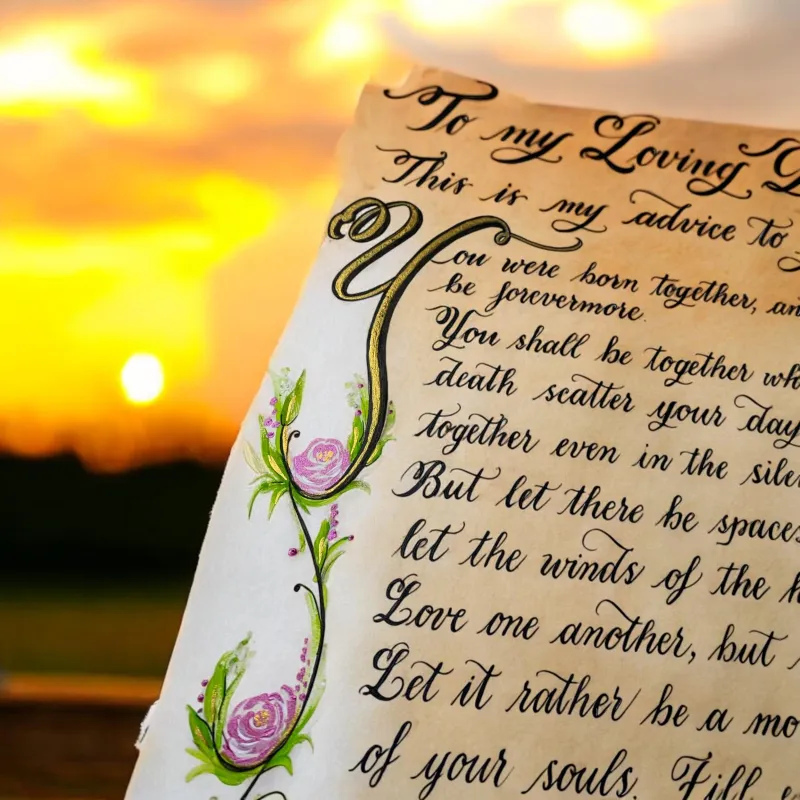 To my Loving
This is my advice to
You were born together, an
be forevermore.
You shall be together wh
death scatter your day
together even in the silen
But let there be spaces
let the winds of the h
Love one another, but
Let it rather be a mo
of your souls. Fill